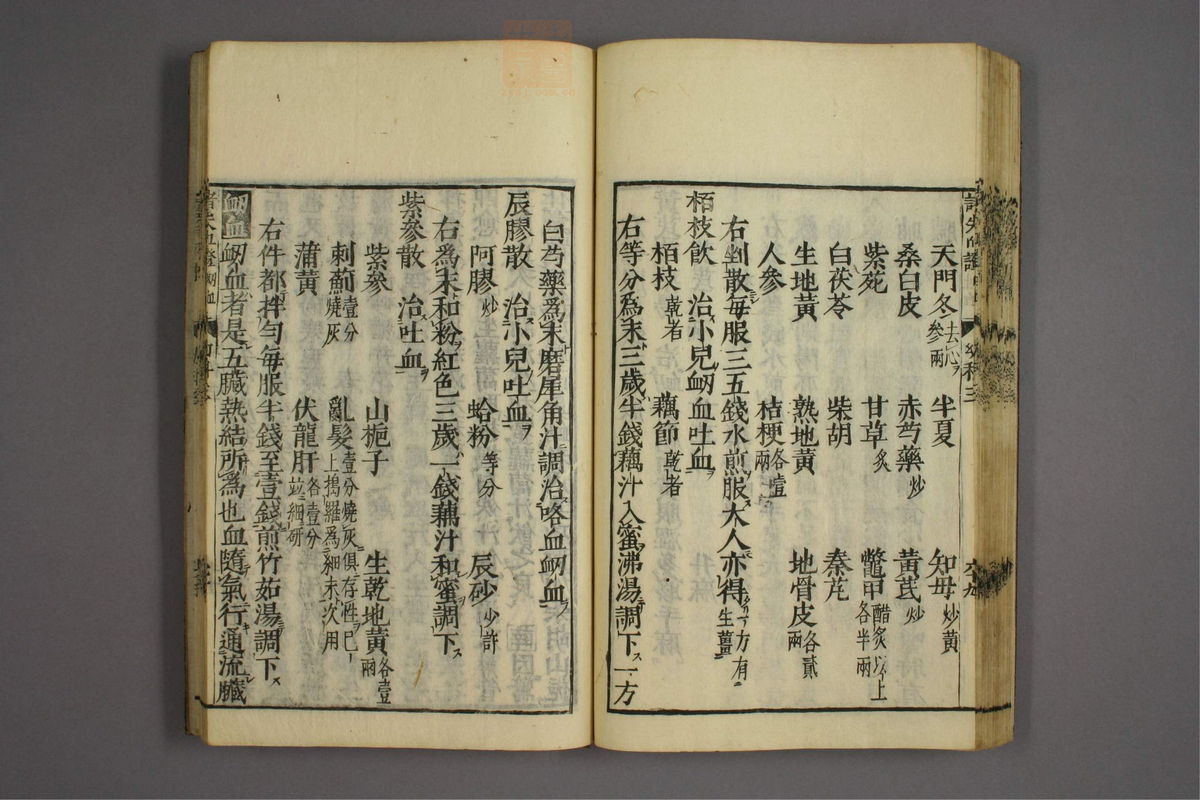 天門冬去心參兩 半夏 知母炒黃
桑白皮 赤芍藥炒 黃芪炒
紫菀 甘草炙 鼈甲醋炙以上各半兩
白茯苓 柴胡 秦艽
生地黃 熟地黃 地骨皮各貳兩
人參 桔梗各壹兩半
右剉散每服三五錢水煎服大人亦得一方有生薑
栢枝飲 治小兒衂血吐血
栢枝乾者 藕節乾者
右等分爲末三歲半錢藕汁入蜜沸湯調下一方
白芍藥爲末磨犀角汁調治咯血衂血
辰膠散 治小兒吐血
阿膠炒 蛤粉等分 辰砂少許
右爲末和粉紅色三歲一錢藕汁和蜜調下
紫參散 治吐血
紫參 山梔子 生乾地黃各壹兩
刺薊壹分燒灰 亂髮壹分燒灰俱存性已上搗羅爲細末次用
蒲黃 伏龍肝各壹分並細研
右件都拌勻每服半錢至壹錢煎竹茹湯調下
衂血衂血者是五臟熱結所爲也血隨氣行通流臟